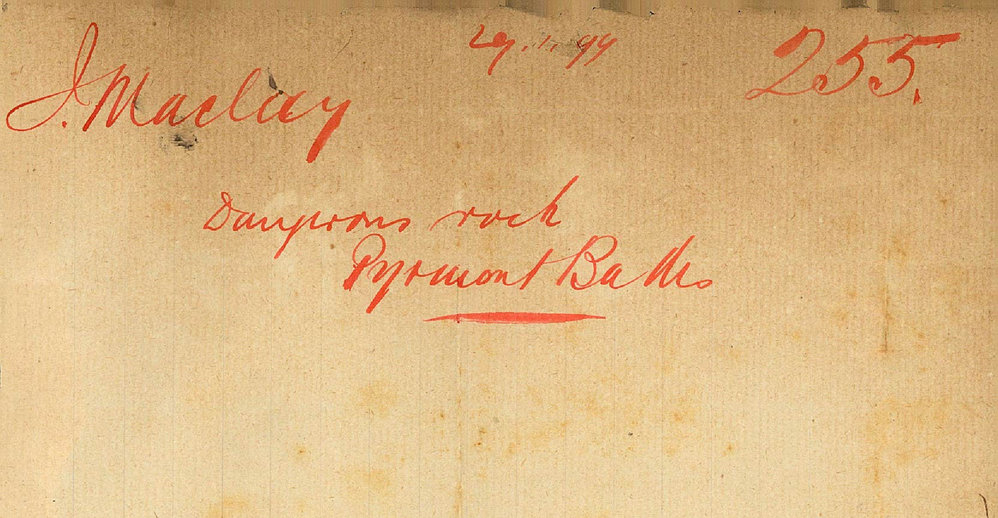 J. Maclay 29.1.99 255.
Dangerous rock
Pyrmont Baths